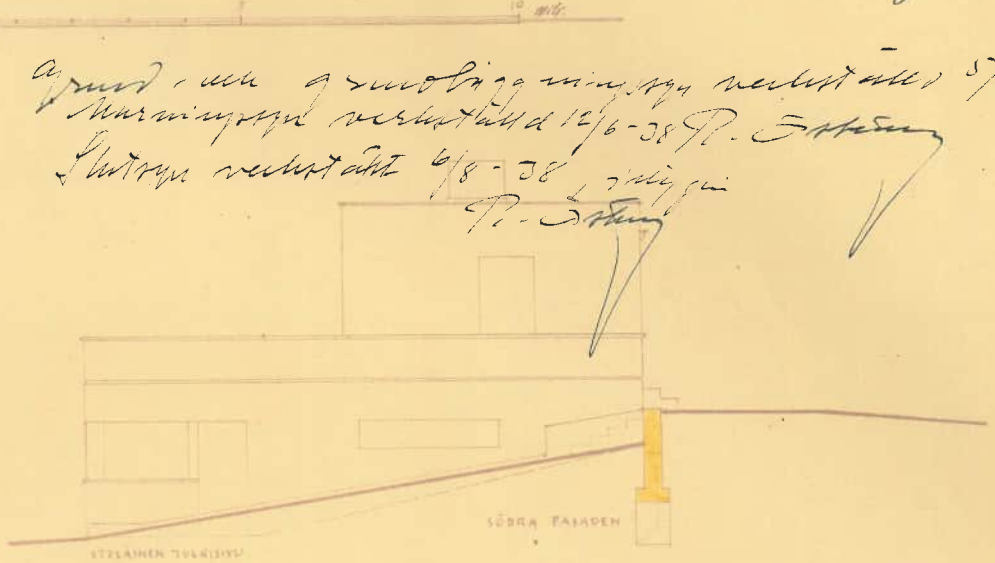 10 mtr.
Grund- och grundläggningssyn verkställd
Murningssyn verkställd 12/6-38 R.
Slutsyn verkställt 6/8-38
R.
SÖDRA FASADEN
ETELÄINEN JULKISIVU